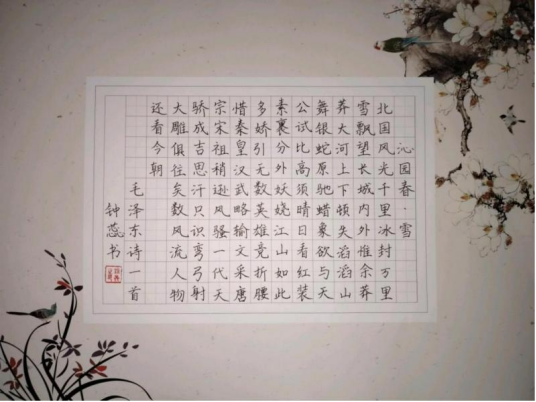 沁园春·雪
北国风光千里冰封万里
雪飘望长城内外惟余莽
莽大河上下顿失滔滔山
舞银蛇原驰蜡象欲与天
公试比高须晴日看红装
素裹分外妖娆江山如此
多娇引无数英雄竞折腰
惜秦皇汉武略输文采唐
宗宋祖稍逊风骚一代天
骄成吉思汗只识弯弓射
大雕俱往矣数风流人物
还看今朝
毛泽东诗一首
钟蕊书